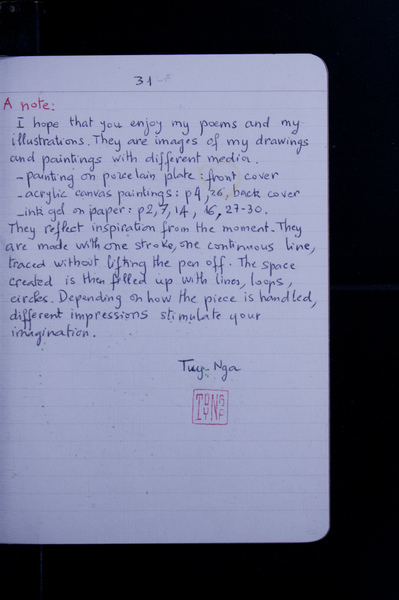 31
A note:
I hope that you enjoy my poems and my
illustrations. They are images of my drawings
and paintings with different media.
- painting on porcelain plate : front cover
- acrylic canvas paintings : p4, 26, back cover
- ink gel on paper : p2, 7, 14, 16, 27-30.
They reflect inspiration from the moment. They
are made with one stroke, one continuous line,
traced without lifting the pen off. The space
created is then filled up with lines, loops,
circles. Depending on how the piece is handled,
different impressions stimulate your
imagination.
Tuy-Nga